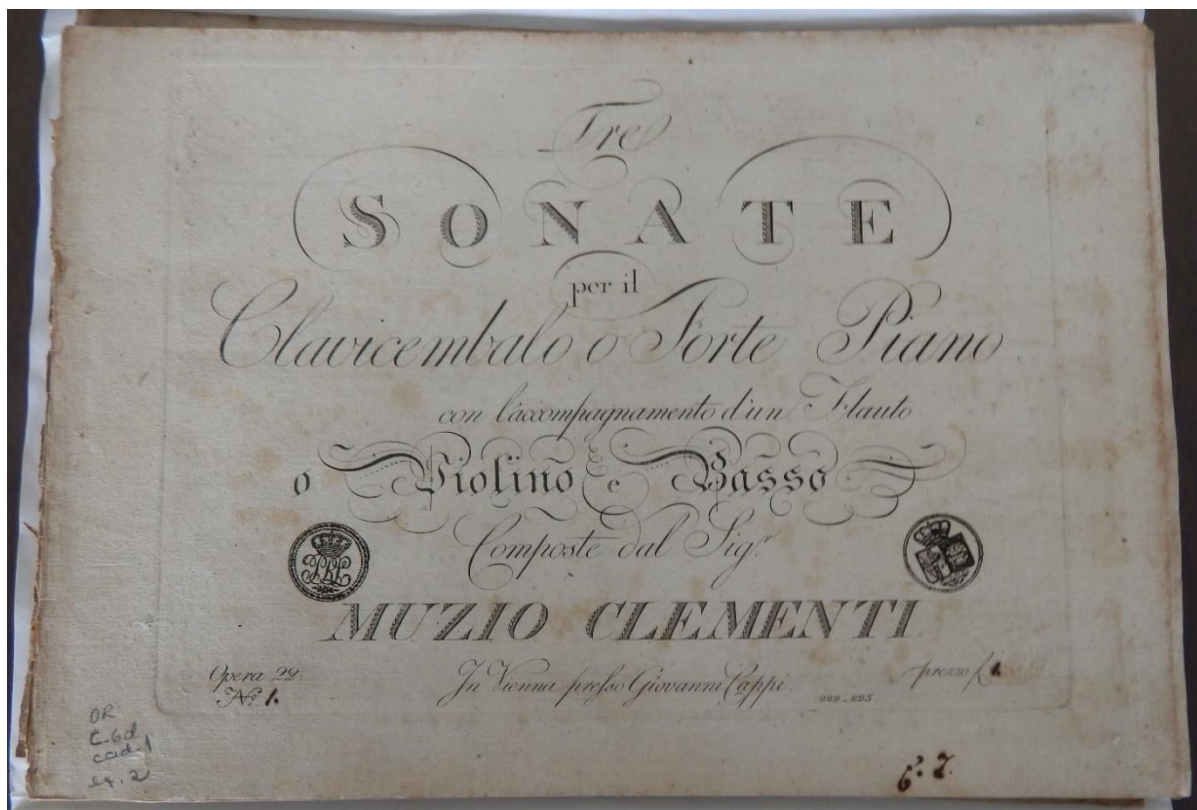 Tre
SONATE
per il
Clavicembalo o Forte Piano
con l'accompagnamento d'un Flauto
o Violino e Basso
Composte dal Sigr.
MUZIO CLEMENTI
Opera 22.
No. 1.
In Vienna presso Giovanni Cappi.
prezzo f 1.
OR
C.6d
cad.1
ex. 2